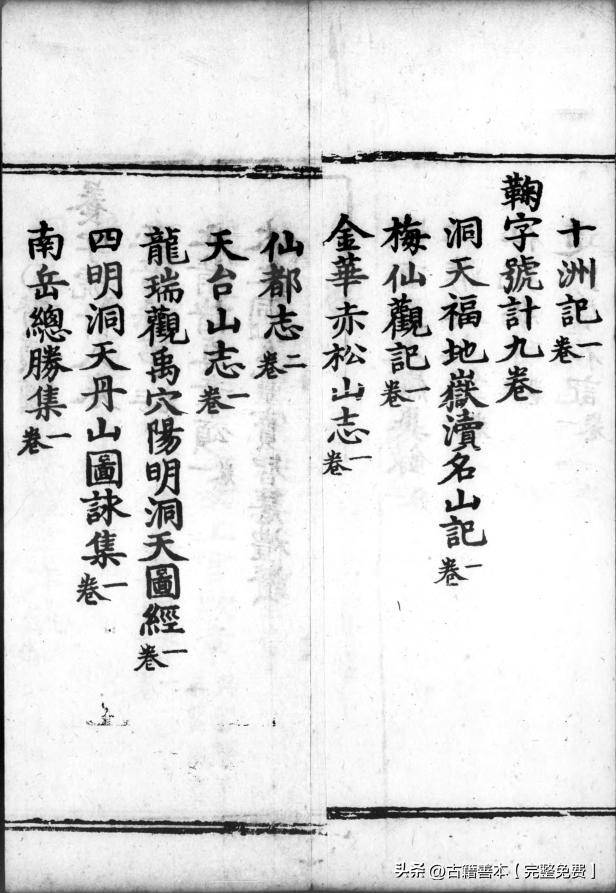 十洲記一卷
鞠字號計九卷
洞天福地嶽瀆名山記一卷
梅仙觀記一卷
金華赤松山志一卷
仙都志二卷
天台山志一卷
龍瑞觀禹穴陽明洞天圖經一卷
四明洞天丹山圖詠集一卷
南岳總勝集一卷
头条 @古籍善本【完整免费】